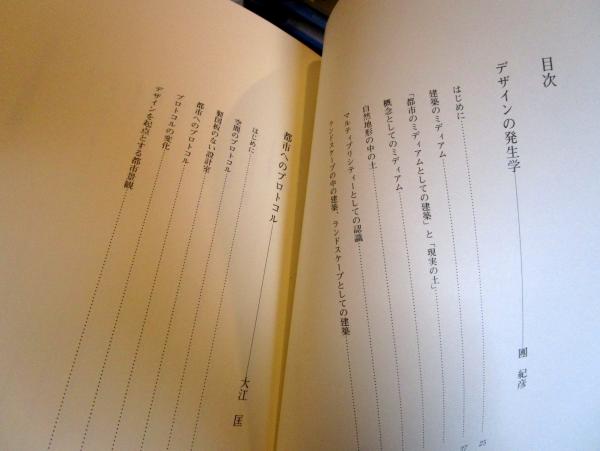 目次
デザインの発生学 團 紀彦
はじめに 25
建築のミディアム 27
「都市のミディアムとしての建築」と「現実の土」
概念としてのミディアム
自然地形の中の土
マルティプリシティーとしての認識
ランドスケープの中の建築、ランドスケープとしての建築
都市へのプロトコル 大江 匡
はじめに
空間のプロトコル
製図板のない設計室
都市へのプロトコル
プロトコルの変化
デザインを起点とする都市景観